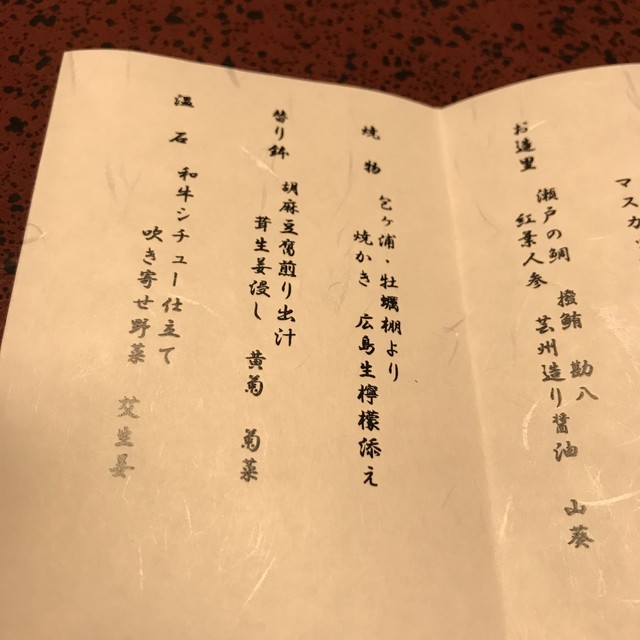 マスカ
お造里 瀬戸の鯛 撥鮪 勘八
紅葉人参 芸州造り醤油 山葵
焼物 包ヶ浦・牡蠣棚より
焼かき 広島生檸檬添え
替り鉢 胡麻豆腐煎り出汁
茸生姜浸し 黄菊 菊菜
温石 和牛シチュー仕立て
吹き寄せ野菜 芽生姜